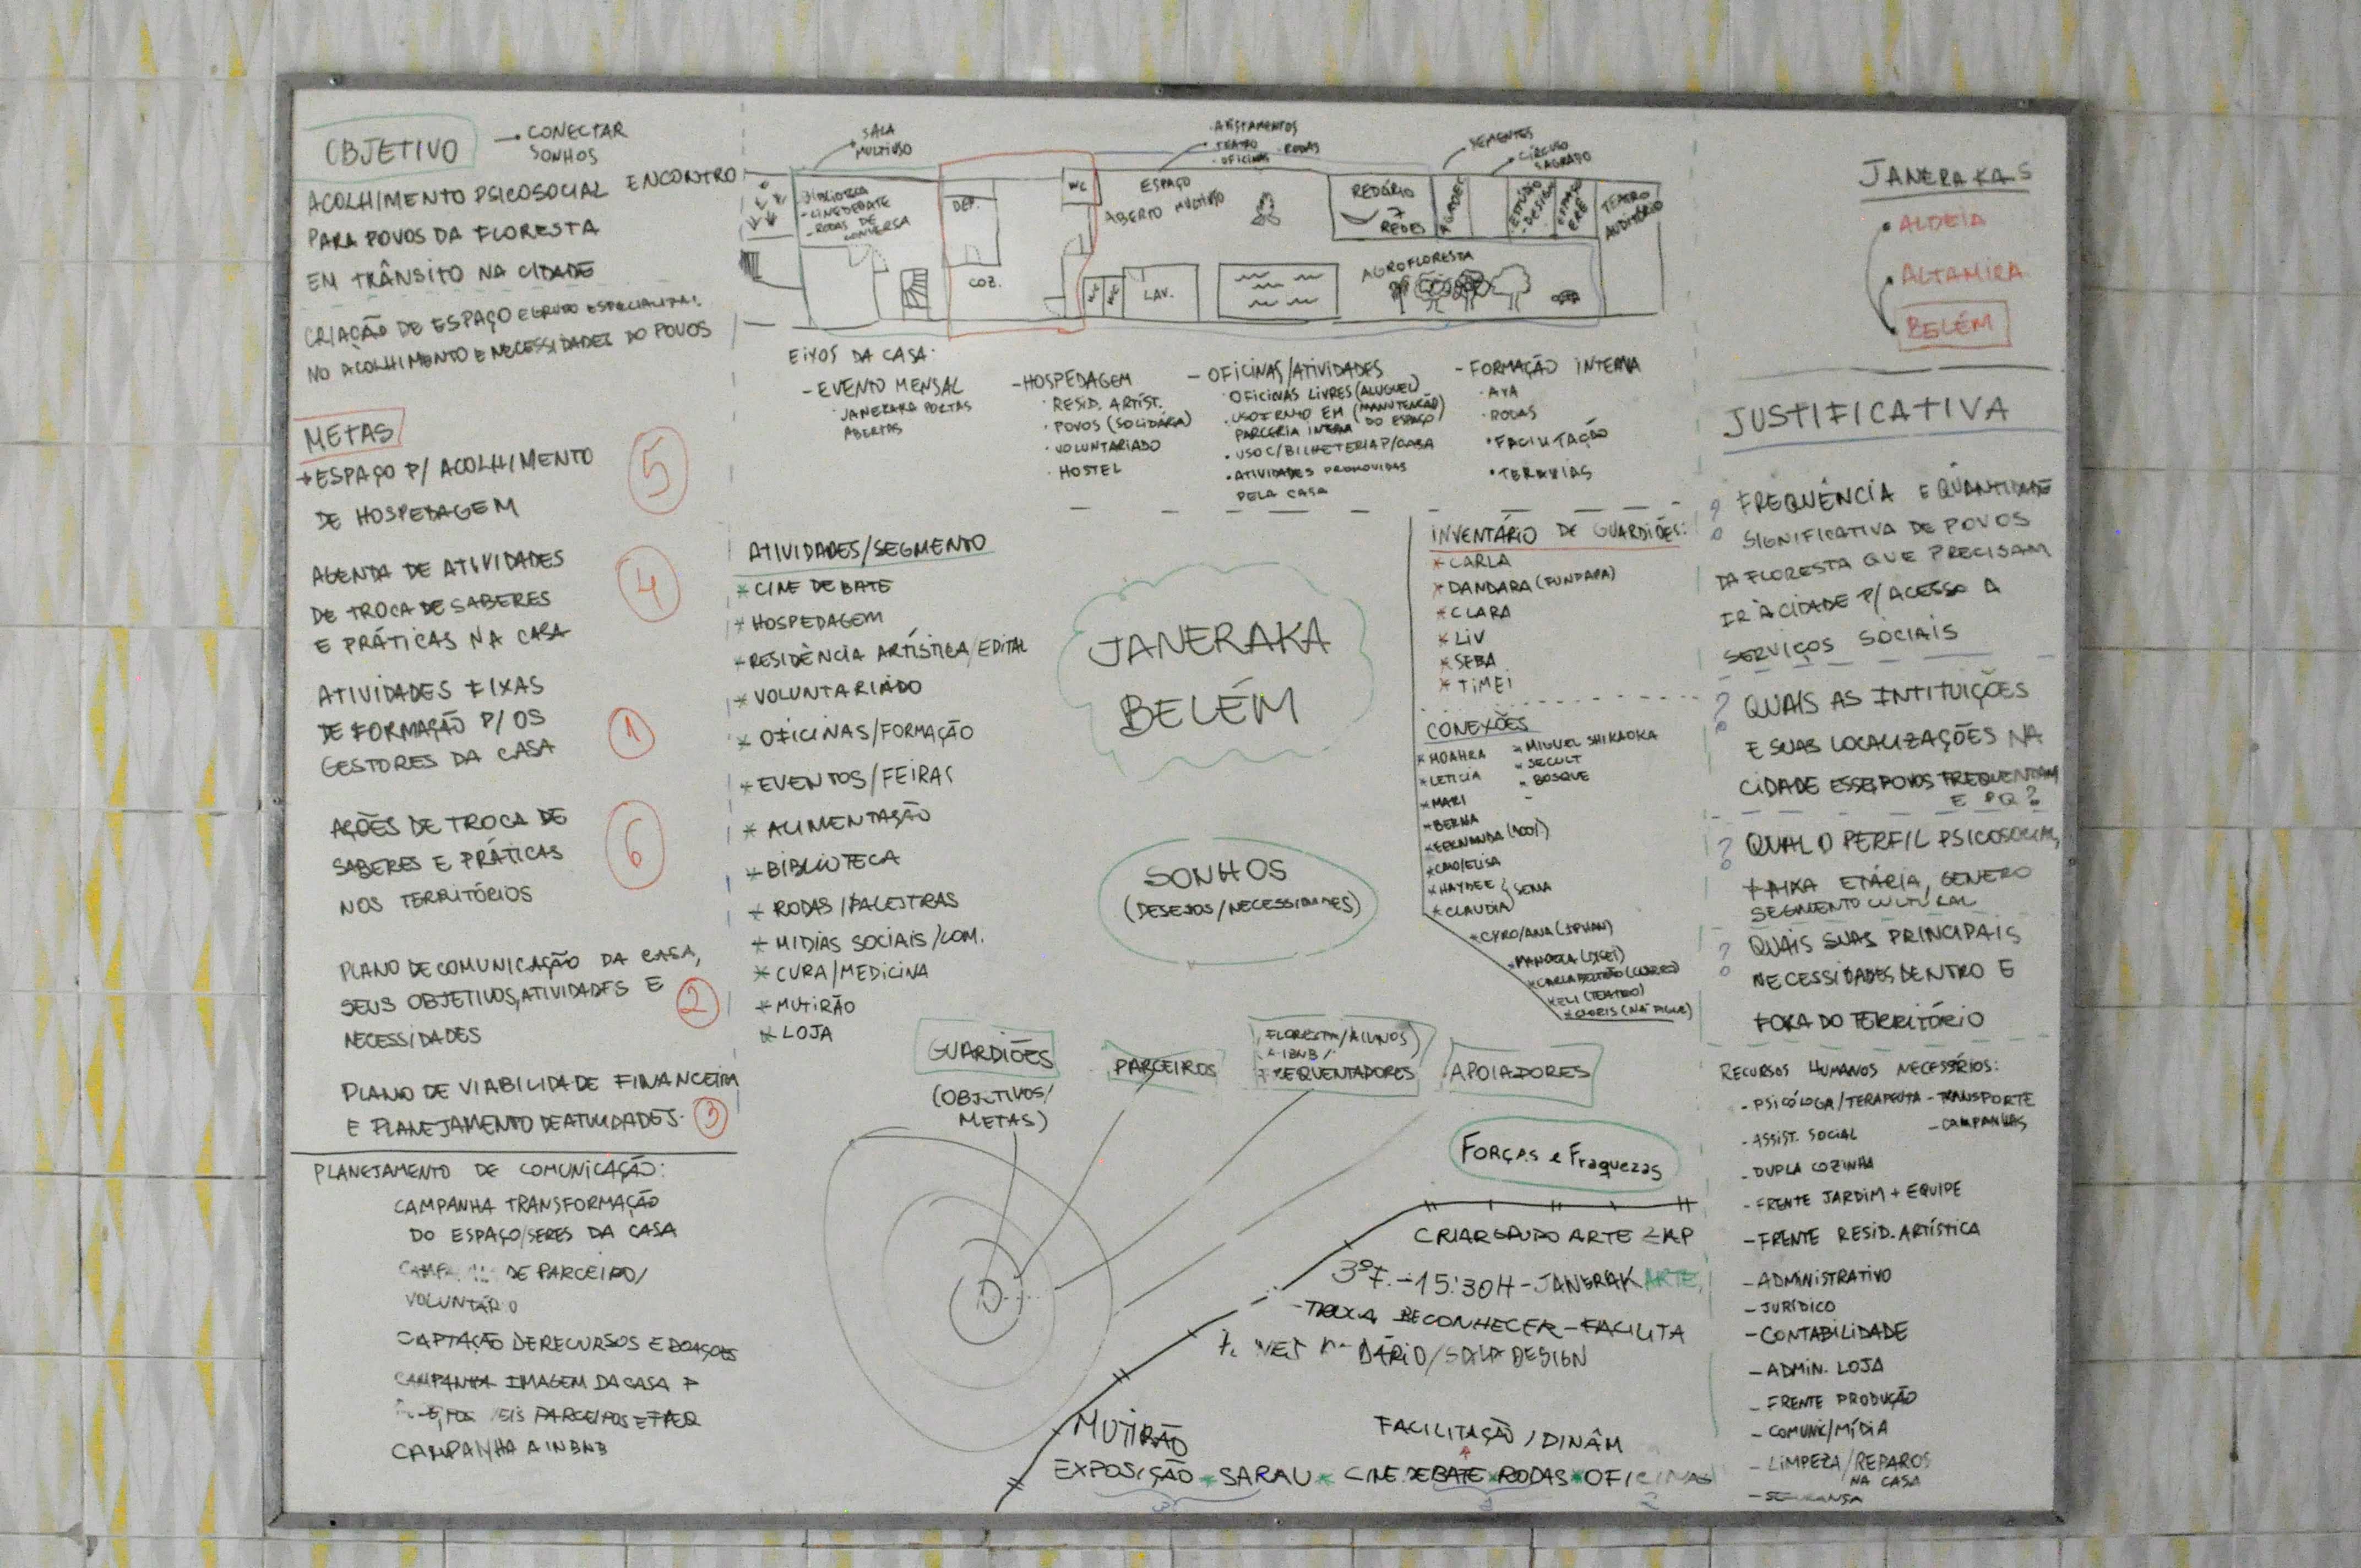 OBJETIVO
CONECTAR
SONHOS
ACOLHIMENTO PSICOSOCIAL ENCONTRO
PARA POVOS DA FLORESTA
EM TRÂNSITO NA CIDADE
CRIAÇÃO DE ESPAÇO E GRUPO
NO ACOLHIMENTO E NECESSIDADES DO POVOS
METAS
ESPAÇO P/ ACOLHIMENTO
DE HOSPEDAGEM
5
AGENDA DE ATIVIDADES
DE TROCA DE SABERES
E PRÁTICAS NA CASA
4
ATIVIDADES FIXAS
DE FORMAÇÃO P/ OS
GESTORES DA CASA
1
AÇÕES DE TROCA DE
SABERES E PRÁTICAS
NOS TERRITÓRIOS
6
PLANO DE COMUNICAÇÃO DA CASA,
SEUS OBJETIVOS, ATIVIDADES E
NECESSIDADES
2
PLANO DE VIABILIDADE FINANCEIRA
E PLANEJAMENTO DE ATIVIDADES.
3
PLANEJAMENTO DE COMUNICAÇÃO:
CAMPANHA TRANSFORMAÇÃO
DO ESPAÇO/SERES DA CASA
DE PARCEIRO/
VOLUNTÁRIO
CAPTAÇÃO DE RECURSOS E DOAÇÕES
CAMPANHA IMAGEM DA CASA P
PARCEIROS E
CAMPANHA AIRBNB
SALA
MULTIUSO
BIBLIOTECA
- CINEDEBATE
- RODAS DE
CONVERSA
DEP.
COZ.
WC
TEATRO
· OFICINAS · RODAS
ESPAÇO
ABERTO MULTIUSO
WC WC
LAV.
REDÁRIO
7
REDES
SEMENTES
CÍRCULO
SAGRADO
ESTÚDIO
DESIGN
TEATRO
AUDITÓRIO
AGROFLORESTA
EIXOS DA CASA:
- EVENTO MENSAL
· JANERAKA PORTAS
ABERTAS
- HOSPEDAGEM
· RESID. ARTÍST.
· POVOS (SOLIDÁRIA)
· VOLUNTARIADO
· HOSTEL
- OFICINAS/ATIVIDADES
· OFICINAS LIVRES (ALUGUEL)
EM (MANUTENÇÃO)
PARCERIA INTERNA DO ESPAÇO
· USO C/ BILHETERIA P/ CASA
· ATIVIDADES PROMOVIDAS
PELA CASA
- FORMAÇÃO INTERNA
· AYA
· RODAS
· FACILITAÇÃO
· TERAPIAS
ATIVIDADES/SEGMENTO
* CINE DEBATE
* HOSPEDAGEM
* RESIDÊNCIA ARTÍSTICA/EDITAL
* VOLUNTARIADO
* OFICINAS/FORMAÇÃO
* EVENTOS/FEIRAS
* ALIMENTAÇÃO
* BIBLIOTECA
* RODAS/PALESTRAS
* MIDIAS SOCIAIS/COM.
* CURA/MEDICINA
* MUTIRÃO
* LOJA
JANERAKA
BELÉM
SONHOS
(DESEJOS/NECESSIDADES)
INVENTÁRIO DE GUARDIÕES:
* CARLA
* DANDARA
* CLARA
* LIV
* SEBA
* TIMEI
CONEXÕES
* MOAHRA
* LETICIA
* MARI
* BERNA
* FERNANDA
* CAIO/ELISA
* HAYDEE
* CLAUDIA
SEMA
* MIGUEL SHIKAOKA
* SECULT
* BOSQUE
* CYRO/ANA (IPHAN)
* ELI (TEATRO)
GUARDIÕES
(OBJETIVOS/
METAS)
PARCEIROS
FLORESTA/ALUNOS
AIRBNB/
FREQUENTADORES
APOIADORES
FORÇAS e Fraquezas
CRIAR GRUPO ARTE ZAP
3ª F. - 15:30H - JANERAKARTE
RECONHECER - FACILITA
DÁRIO/SALA DESIGN
MUTIRÃO
FACILITAÇÃO/DINÂM
EXPOSIÇÃO * SARAU * CINE DEBATE * RODAS * OFICINAS
JANERAKAS
ALDEIA
ALTAMIRA
BELÉM
JUSTIFICATIVA
? FREQUÊNCIA E QUANTIDADE
SIGNIFICATIVA DE POVOS
DA FLORESTA QUE PRECISAM
IR À CIDADE P/ ACESSO A
SERVIÇOS SOCIAIS
? QUAIS AS INTITUIÇÕES
E SUAS LOCALIZAÇÕES NA
CIDADE ESSE POVOS FREQUENTAM
E PQ?
? QUAL O PERFIL PSICOSOCIAL,
FAIXA ETÁRIA, GENERO
SEGMENTO CULTURAL
? QUAIS SUAS PRINCIPAIS
NECESSIDADES DENTRO E
FORA DO TERRITÓRIO
RECURSOS HUMANOS NECESSÁRIOS:
- PSICÓLOGA/TERAPEUTA - TRANSPORTE
- ASSIST. SOCIAL - CAMPANHAS
- DUPLA COZINHA
- FRENTE JARDIM + EQUIPE
- FRENTE RESID. ARTÍSTICA
- ADMINISTRATIVO
- JURÍDICO
- CONTABILIDADE
- ADMIN. LOJA
- FRENTE PRODUÇÃO
- COMUNIC/MÍDIA
- LIMPEZA/REPAROS
NA CASA